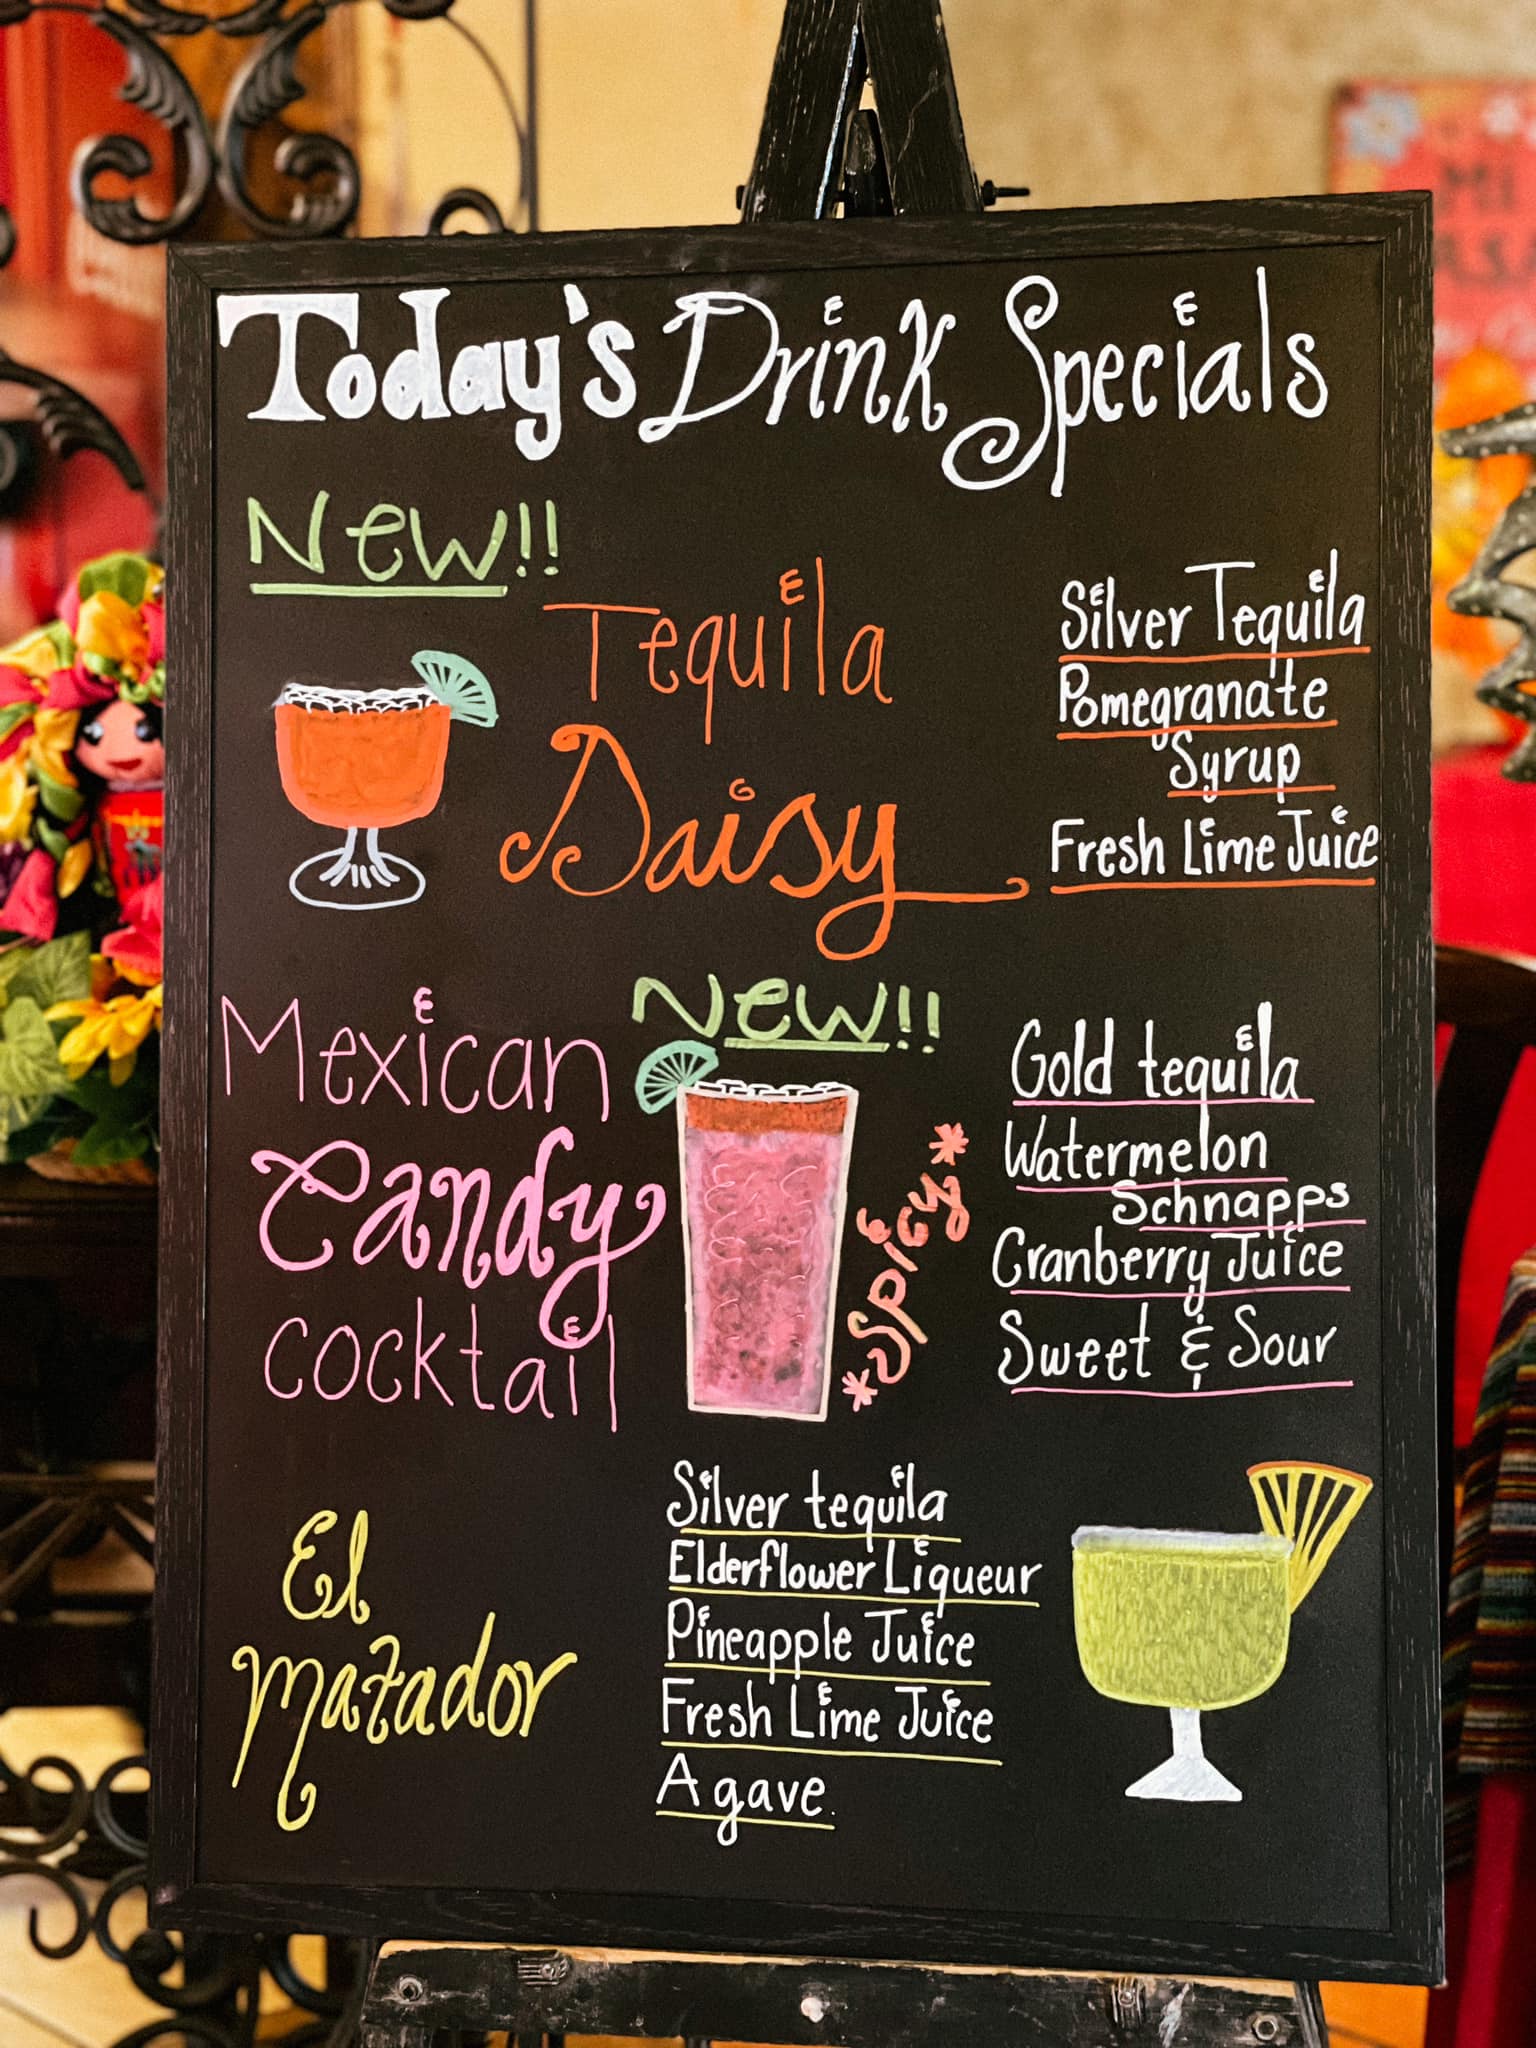 Today's Drink Specials
New!!
Tequila
Daisy
Silver Tequila
Pomegranate
Syrup
Fresh Lime Juice
New!!
Mexican
Candy
cocktail
*Spicy*
Gold tequila
Watermelon
Schnapps
Cranberry Juice
Sweet & Sour
El
Matador
Silver tequila
Elderflower Liqueur
Pineapple Juice
Fresh Lime Juice
Agave.
Mi